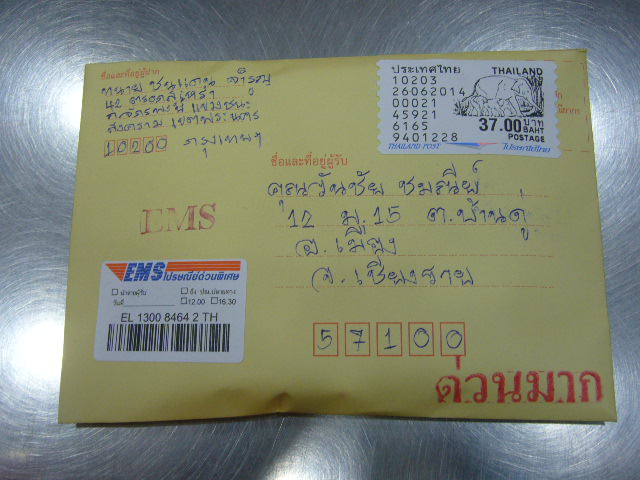 ชื่อและที่อยู่ผู้ฝาก
ทนาย
42 ตรอก
สงคราม เขตพระนคร
10200 กรุงเทพฯ
ประเทศไทย THAILAND
10203
26062014
00021
45921
6165 37.00 บาท BAHT
9401228 POSTAGE
THAILAND POST ไปรษณีย์ไทย
ชื่อและที่อยู่ผู้รับ
คุณวันชัย ชมณีย์
12 ม.15 ต.บ้านดู่
อ.เมือง
จ.เชียงราย
57100
EMS
EMS ไปรษณีย์ด่วนพิเศษ
นำจ่ายผู้รับ ถึง ปณ.ปลายทาง
วันที่ 12.00 16.30
EL 1300 8464 2 TH
ด่วนมาก